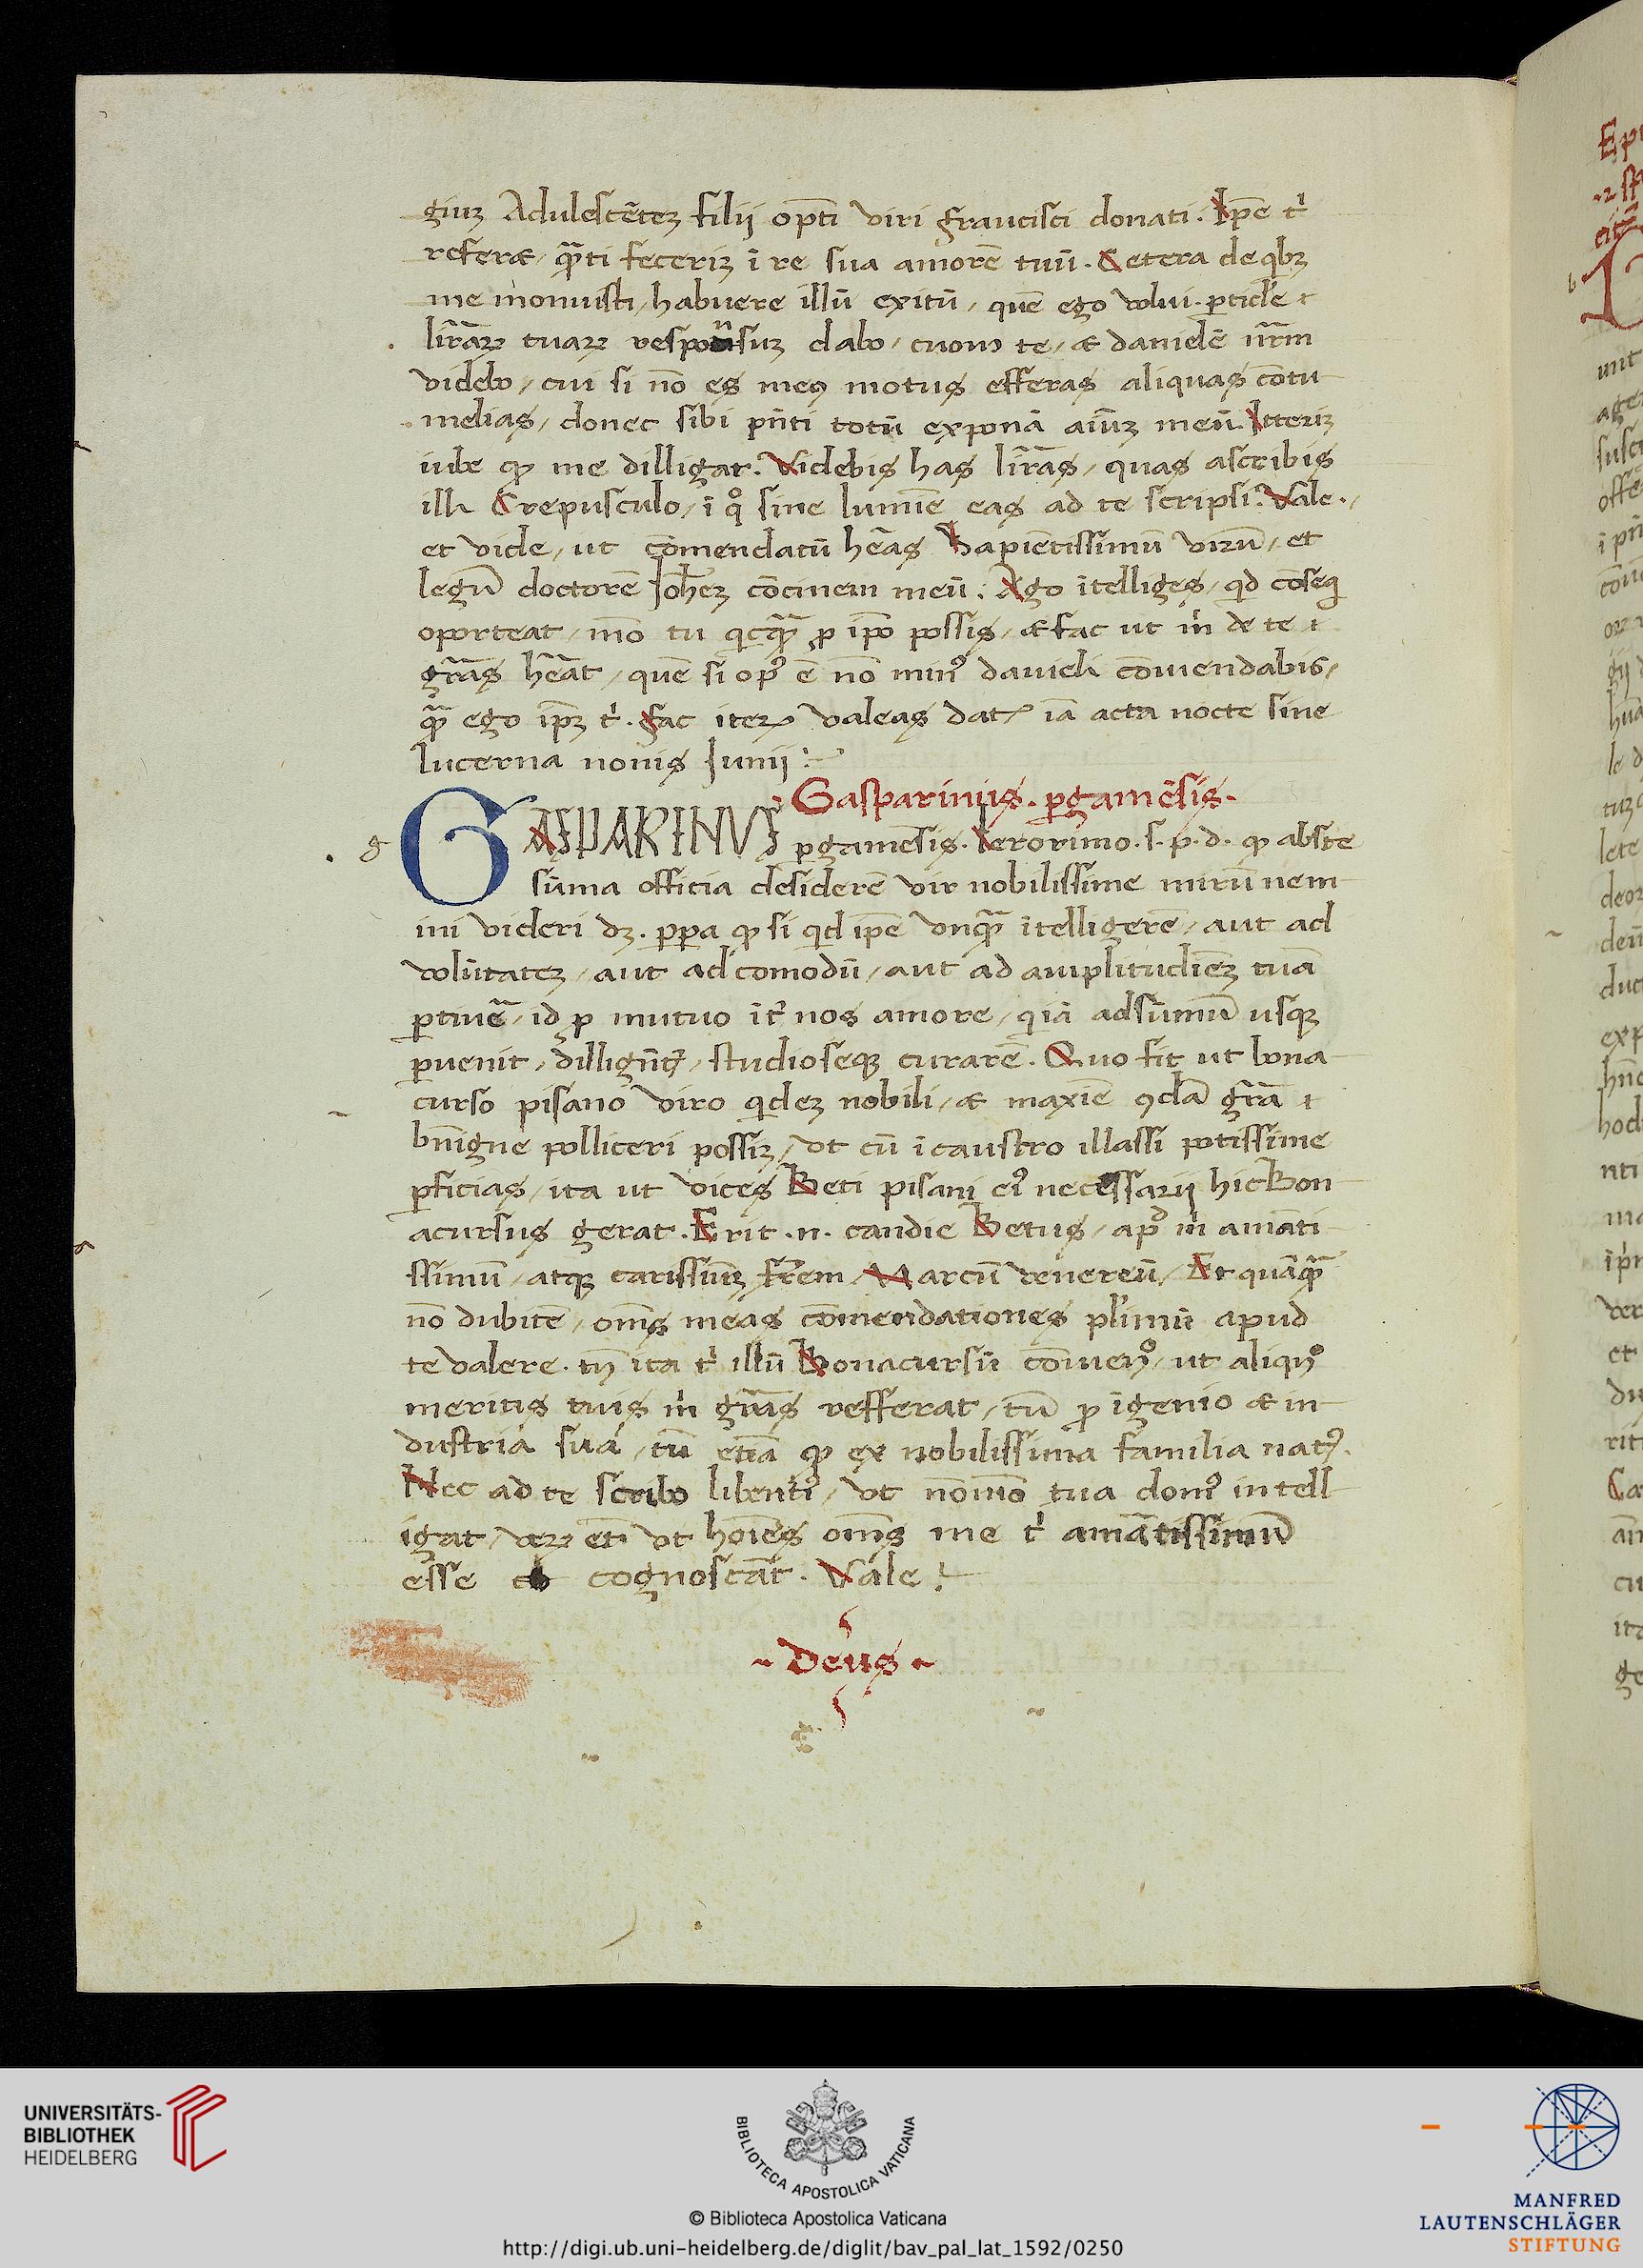 giuz Adulescētez filii opti viri francisci donati. Ipē t'
referet, quāti feceriz ī re sua amorē tuū. Cetera de qbz
me monuisti, habuere illū exitū, quē ego volui. 
lrāꝝ tuaꝝ responsuz dabo, cuom te, et danielē nrm
videbo, cui si nō es meꝯ motus efferas aliquas cōtu
melias, donec sibi pn̄ti totū exponā aiūz meū. Itteriz
iube ꝙ me dilligat. Videbis has lrās, quas ascribis
illi Crepusculo, ī qͦ sine lumīe eas ad te scripsi. Vale.
et vide, ut cōmendatū heās Sapiētissimū virū, et
legū doctorē Joh̄ez cōcinem meū. Ago ītelliges, qd cōseq
oporteat, mō tu qcq̄ ꝓ ipō possis, et fac ut m̄ de te
grās heāt, quē si opꝯ ē nō minꝰ danieli cōmendabis,
q̄ ego ipz t'. fac iteꝝ valeas dat iā acta nocte sine
lucerna nonis Junij
Gasparinus. ꝑgamēsis.
g
GASPARINVS ꝑgamēsis. Ieronimo. s. p. d. ꝙ abste
sūma officia desiderē vir nobilissime mirū nem
ini videri dz. ꝓpa ꝙ si qd ipē vnq̄ ītelligerē, aut ad
volūtatez, aut ad comodū, aut ad amplitudiēz tuā
ꝑtinē, id ꝓ mutuo īt' nos amore, q iā ad sūmū usqz
ꝑvenit, dillign̄t, studioseqz curarē. Quo fit ut bona
curso pisano viro qdez nobili, et maxīe ꝯdā grā
bn̄igne polliceri possiz, vt cū ī caustro illassi potissime
ꝑficias, ita ut vices Beti pisani eiꝰ necessarij hic Bon
acursus gerat. Erit .n. candie Betus, apd m̄ amāti
ssimū, atqz carissimz frem, Marcū venereū, Et quāq̄
nō dubitē, oms meas cōmendationes plimū apud
te valere. tn̄ ita t' illū Bonacursū cōmenͦ, ut aliqnͦ
meritis tuis m̄ grās refferat, tū ꝓ īgenio et in
dustria sua, tū etiā ꝙ ex nobilissima familia natꝰ.
Nec ad te scribo libentiꝰ, vt nō mō tua domꝰ intell
igat, veꝝ eti vt hoīes oms me t' amātissimū
esse cognoscāt. Vale.
Deus
UNIVERSITÄTS-
BIBLIOTHEK
HEIDELBERG
BIBLIOTECA APOSTOLICA VATICANA
© Biblioteca Apostolica Vaticana
http://digi.ub.uni-heidelberg.de/diglit/bav_pal_lat_1592/0250
MANFRED
LAUTENSCHLÄGER
STIFTUNG